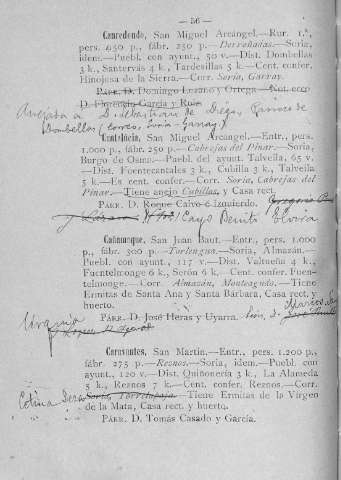 — 56 —
Canredondo, San Miguel Arcángel.—Rur. 1.ª,
pers. 950 p., fábr. 250 p.—Derroñadas.—Soria,
idem.—Puebl. con ayunt., 50 v.—Dist. Dombellas
3 k., Santervás 4 k., Tardesillas 5 k.—Cent. confer.
Hinojosa de la Sierra.—Corr. Soria, Garray.
Párr. D. Domingo Lezano y Ortega
D. Florencio García y Ruiz
Anejada a D. Sebastian de Diego, Párroco de
Dombellas (correo, Soria-Garray)
Cantalucia, San Miguel Arcángel.—Entr., pers.
1.000 p., fábr. 250 p.—Cabrejas del Pinar.—Soria,
Burgo de Osma.—Puebl. del ayunt. Talveila, 65 v.
—Dist. Fuentecantales 3 k., Cubilla 3 k., Talveila
5 k.—Es cent. confer.—Corr. Soria, Cabrejas del
Pinar.—Tiene anejo Cubillas, y Casa rect.
Párr. D. Roque Calvo é Izquierdo. Gregorio
Cayo Benito Elvira
Cañamaque, San Juan Baut.—Entr., pers. 1.000
p., fábr. 300 p.—Torlengua.—Soria, Almazán.—
Puebl. con ayunt., 117 v.—Dist. Valtueña 4 k.,
Fuentelmonge 6 k., Serón 6 k.—Cent. confer. Fuen-
telmonge.—Corr. Almazán, Monteagudo.—Tiene
Ermitas de Santa Ana y Santa Bárbara, Casa rect. y
huerto.
Párr. D. José Heras y Uyarra.
Caravantes, San Martin.—Entr., pers. 1.200 p.,
fábr. 275 p.—Reznos.—Soria, idem.—Puebl. con
ayunt., 120 v.—Dist. Quiñonería 3 k., La Alameda
5 k., Reznos 7 k.—Cent. confer. Reznos.—Corr.
Soria, Torrelapaja.—Tiene Ermitas de la Virgen
de la Mata, Casa rect. y huerto.
Párr. D. Tomás Casado y García.